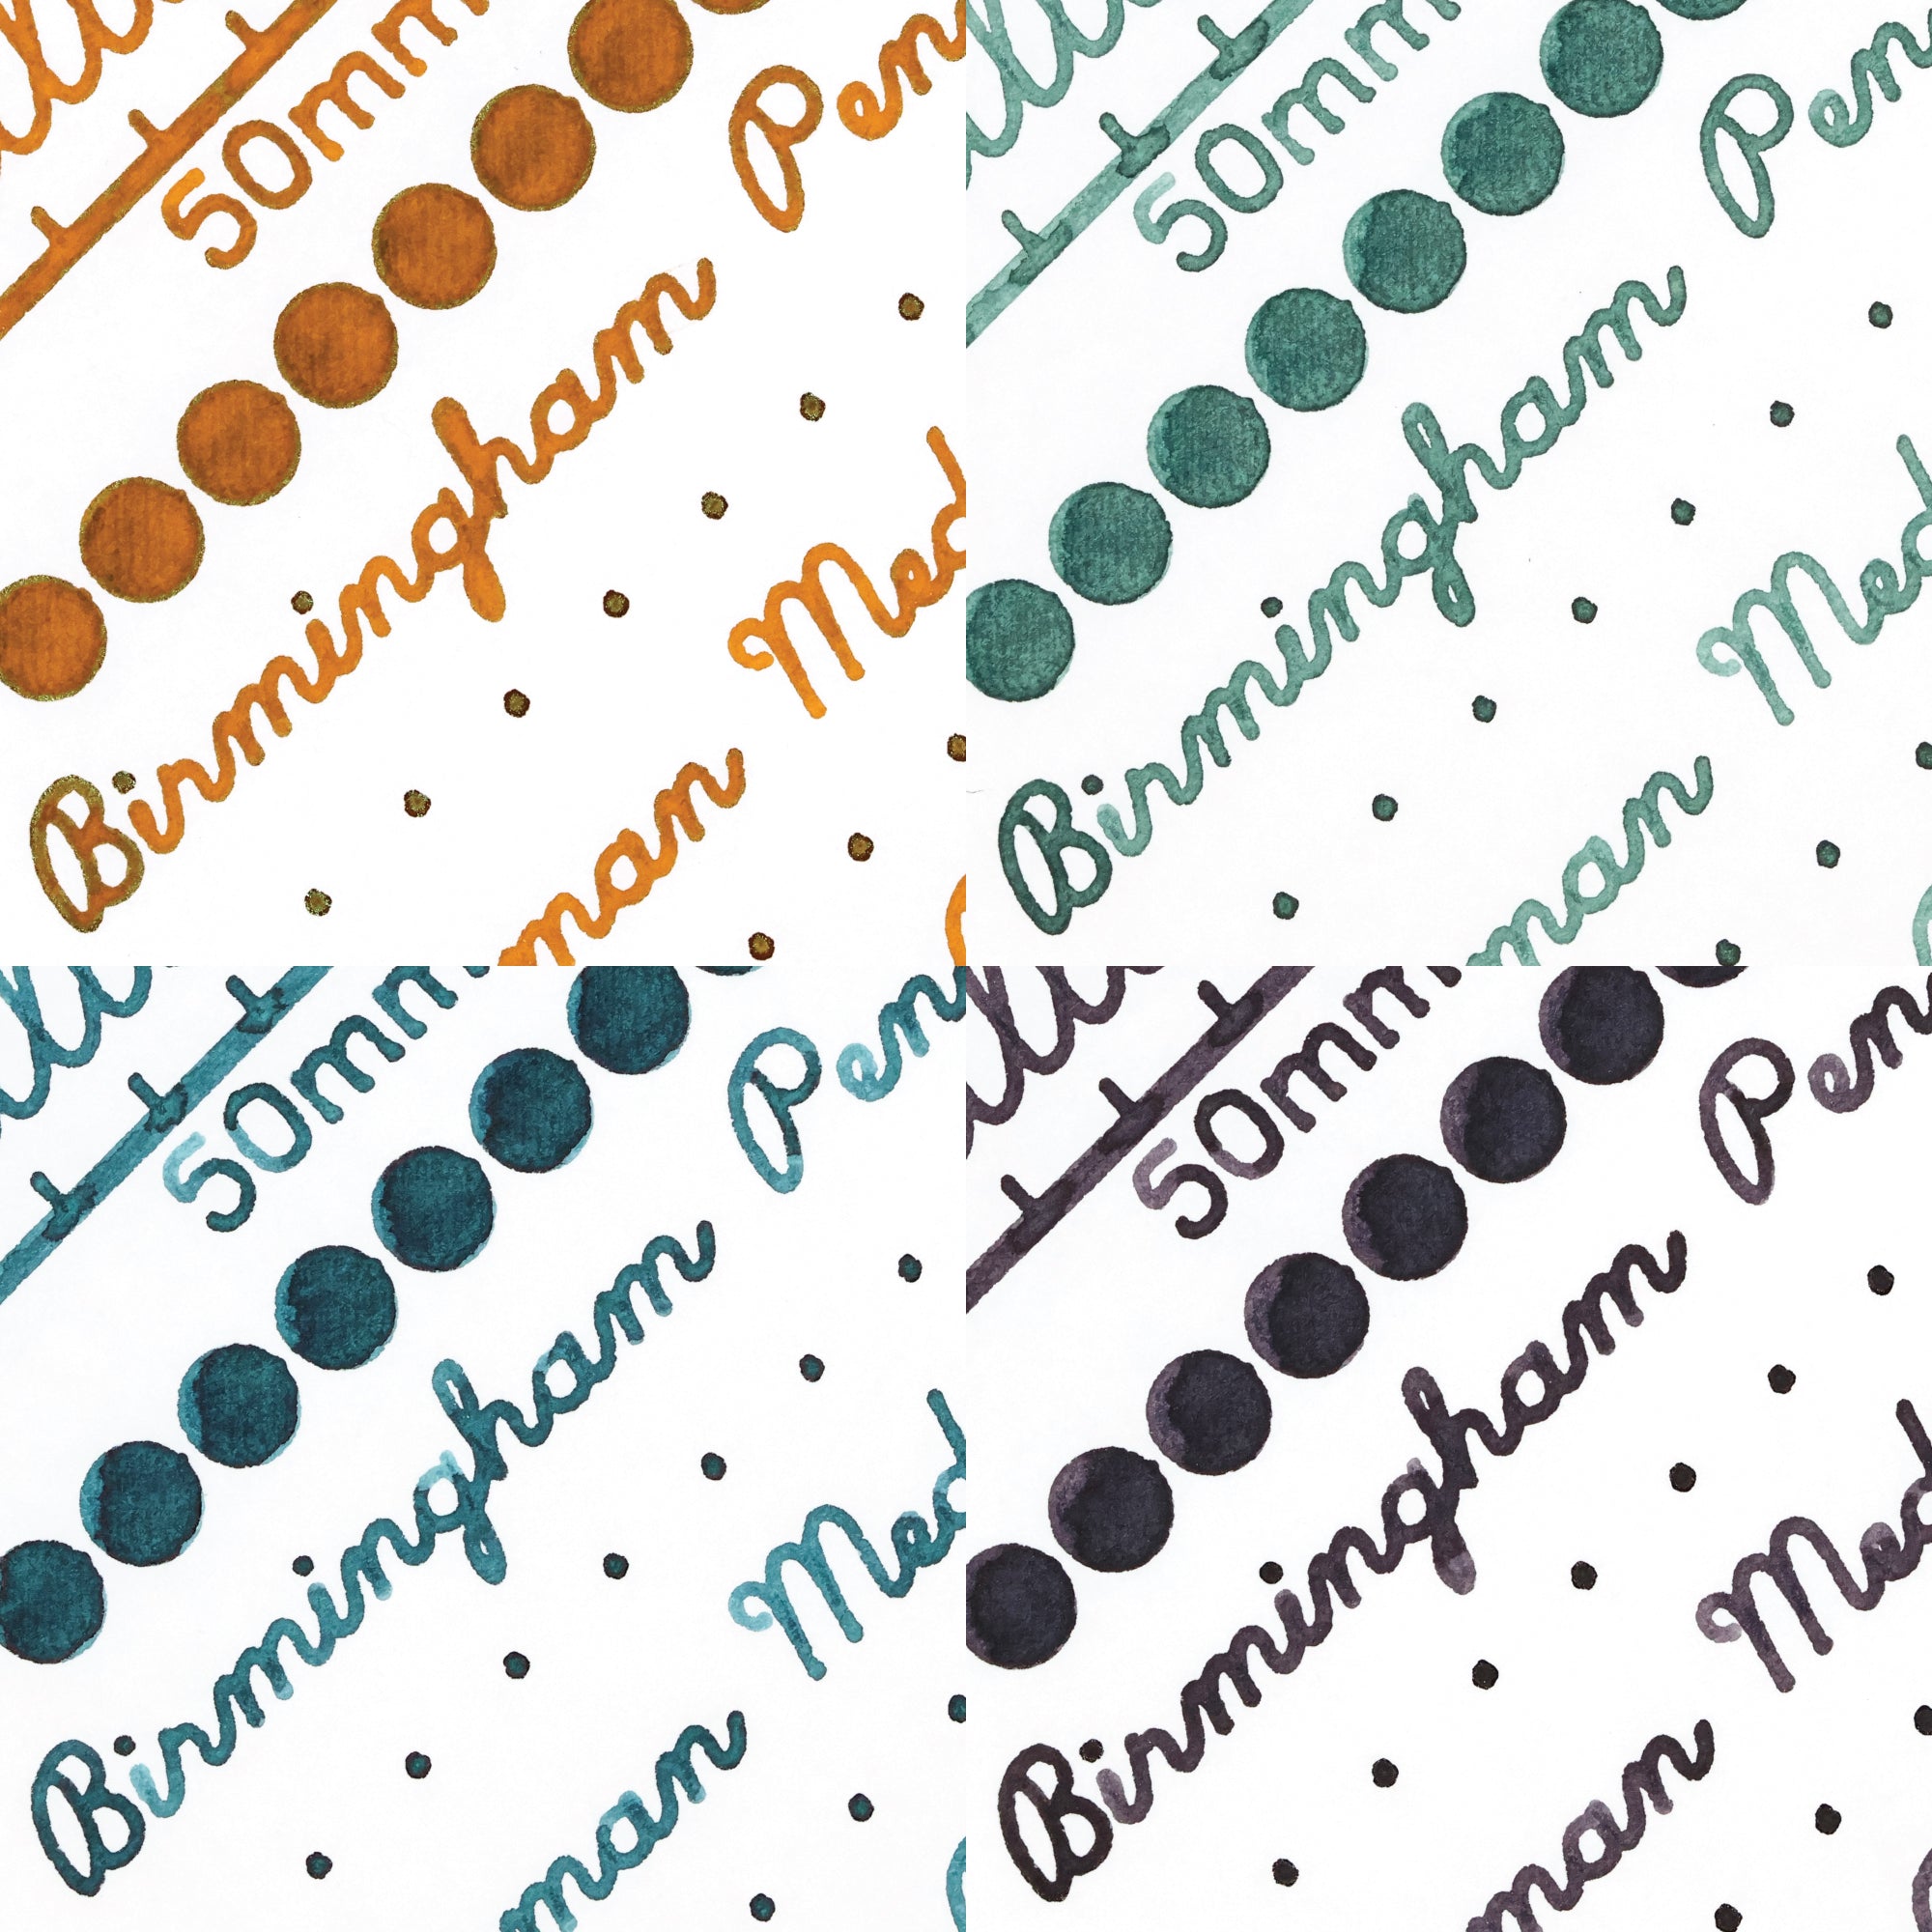 50mm
Pen
Birmingham
Med
man
50mm
Pen
Birmingham
Med
man
50mm
Pen
Birmingham
Med
man
50mm
Pen
Birmingham
Med
man